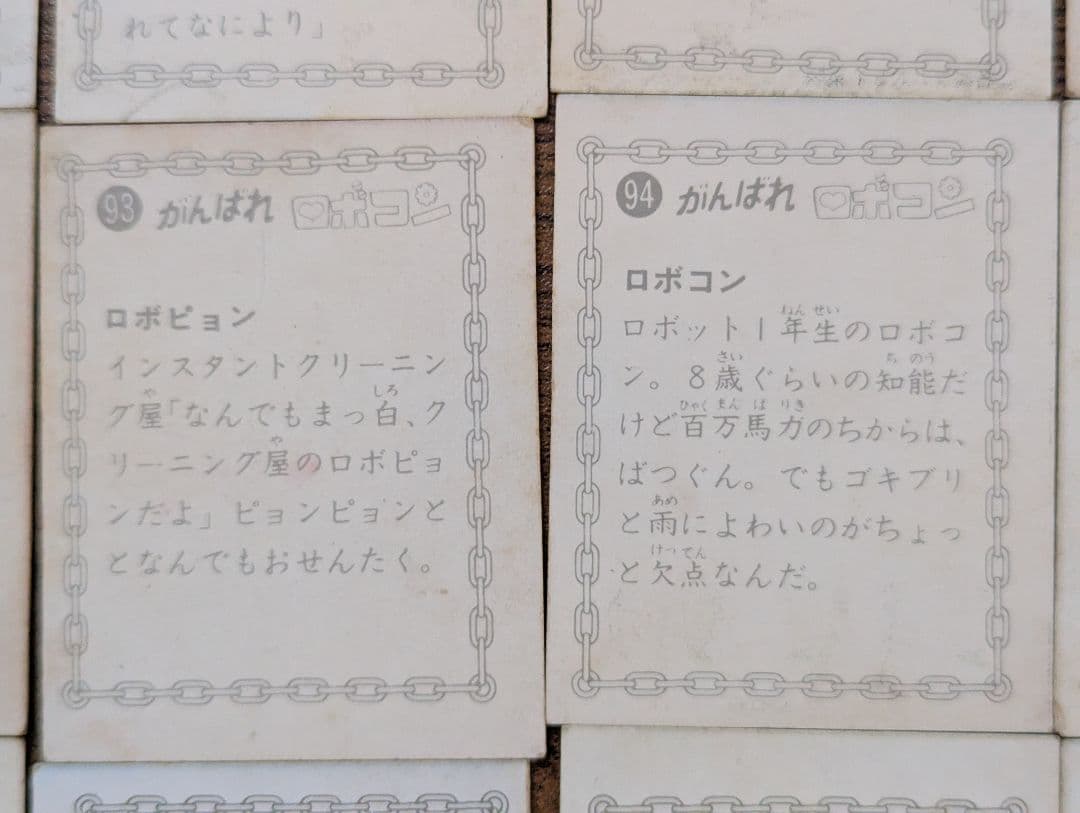 れてなにより」
93 がんばれ ロボコン
ロボピョン
インスタントクリーニン
グ屋「なんでもまっ白、ク
リーニング屋のロボピョ
ンだよ」ピョンピョンと
となんでもおせんたく。
94 がんばれ ロボコン
ロボコン
ロボット1年生のロボコ
ン。8歳ぐらいの知能だ
けど百万馬力のちからは、
ばつぐん。でもゴキブリ
と雨によわいのがちょっ
と欠点なんだ。